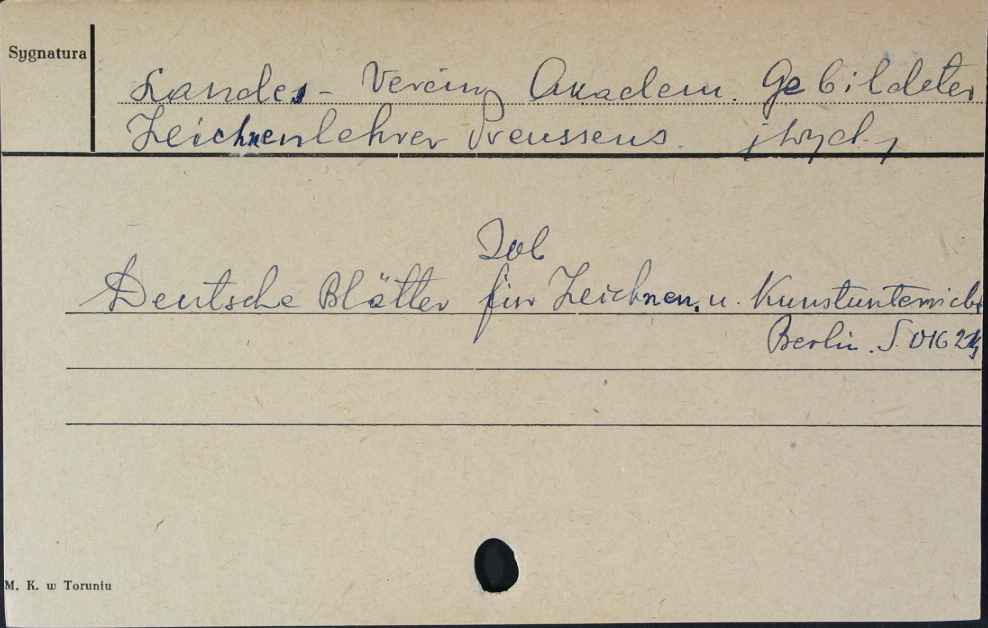 Sygnatura
Landes - Verein Akadem. Gebildeter
Zeichnenlehrer Preussens. /wyd./
Zob
Deutsche Blätter für Zeichnen. u. Kunstunterricht
Berlin.
M. K. w Toruniu